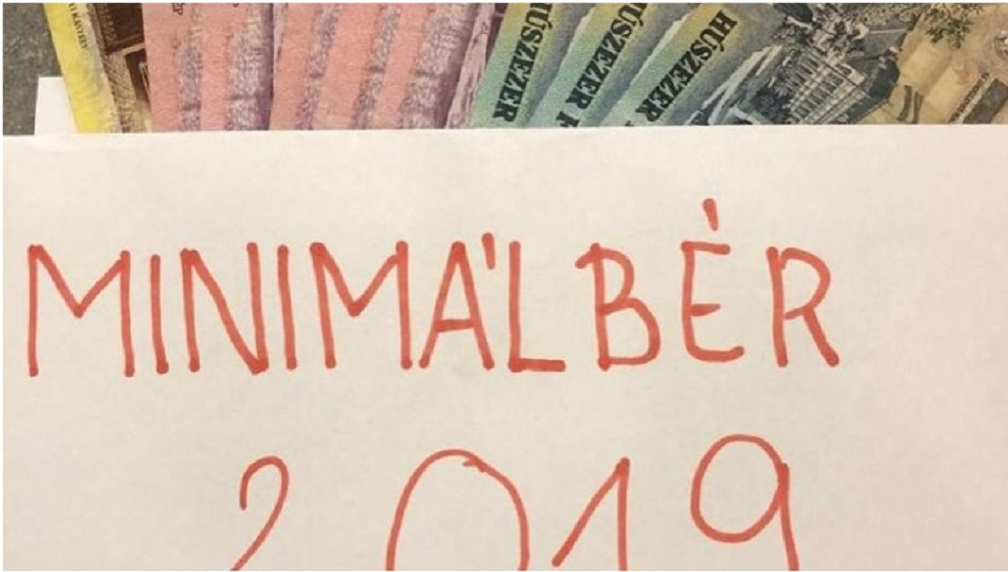 HÚSZEZER
HÚSZEZER
HÚSZEZER
MINIMÁLBÉR
2019